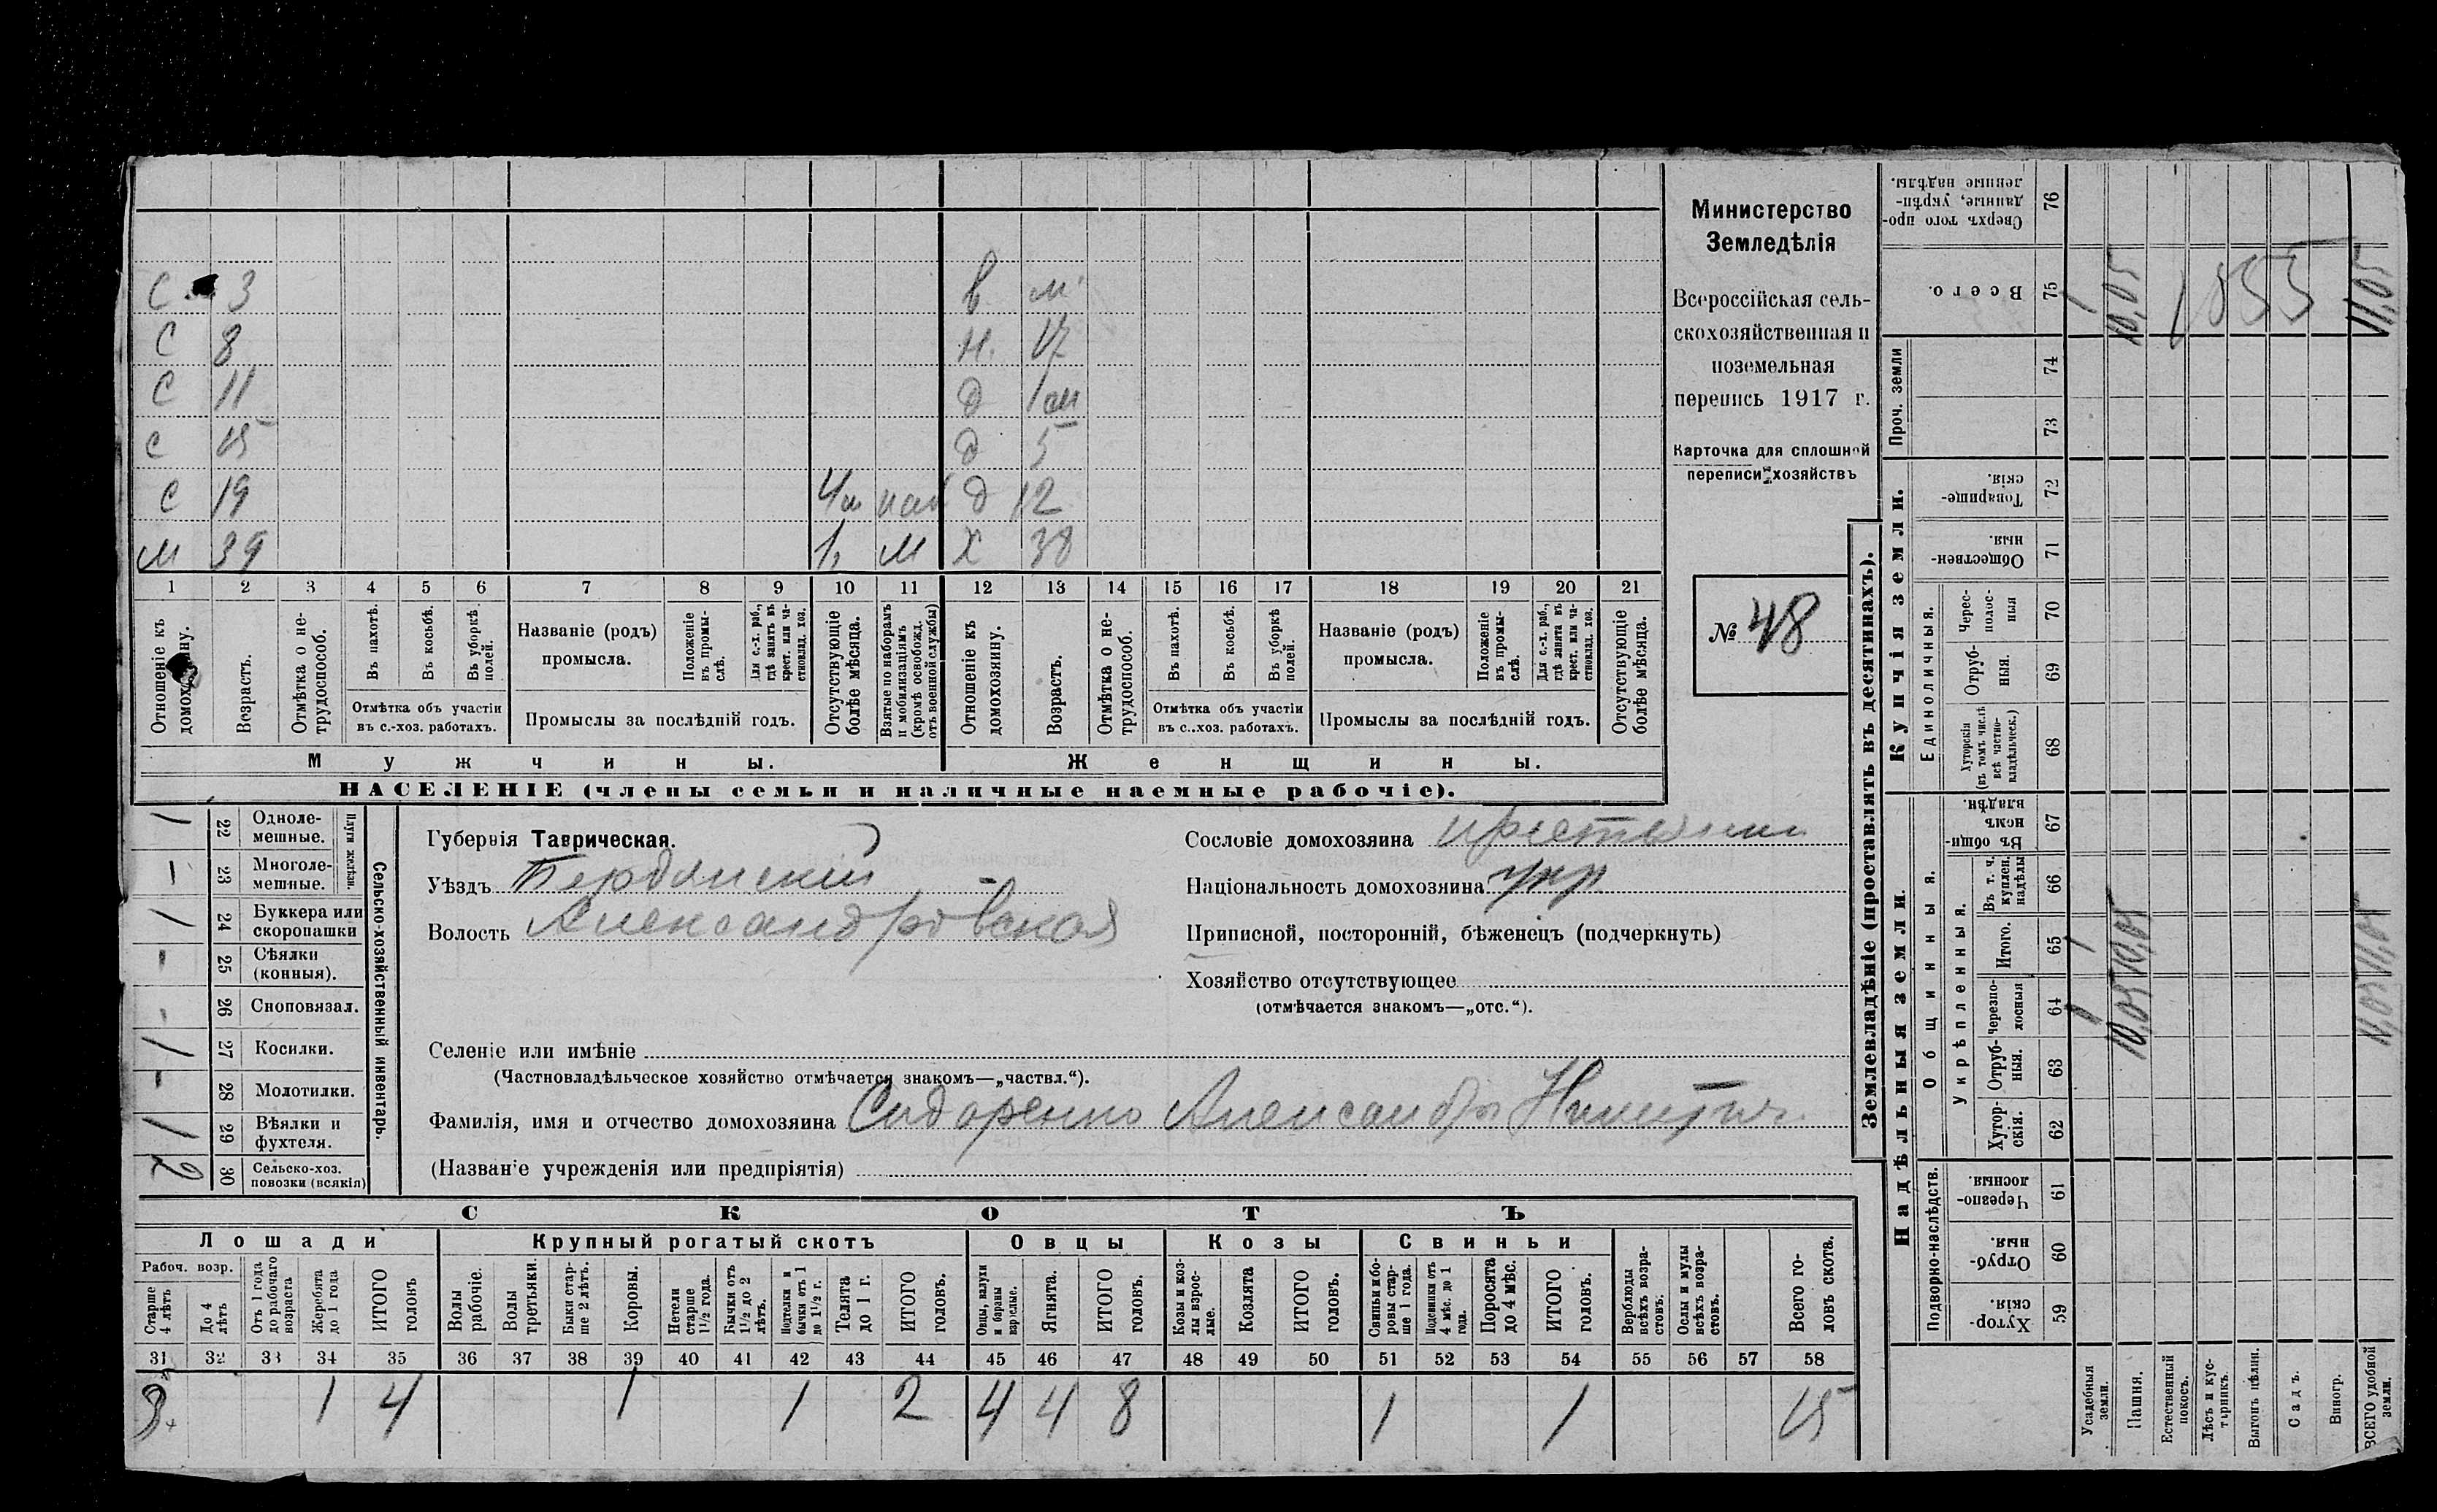 С 3 в м
С 8 н. 17
С 11 д 1 м
С 15 д 5
С 19 4 м наб д 12
М 39 1, М Х 38
1 2 3 4 5 6 7 8 9 10 11 12 13 14 15 16 17 18 19 20 21
Отношеніе къ домохозяину.
Возрастъ.
Отмѣтка о не-
трудоспособ.
Въ пахотѣ.
Въ косьбѣ.
Въ уборкѣ полей.
Отмѣтка объ участіи
въ с.-хоз. работахъ.
Названіе (родъ)
промысла.
Положеніе въ промы-
слѣ.
Для с.-х. раб., гдѣ занятъ въ крест. или ча-
стновлад. хоз.
Промыслы за послѣдній годъ.
Отсутствующіе болѣе мѣсяца.
Взятые по наборамъ и мобилизаціямъ (кромѣ освобожд. отъ военной службы)
Отношеніе къ домохозяину.
Возрастъ.
Отмѣтка о не-
трудоспособ.
Въ пахотѣ.
Въ косьбѣ.
Въ уборкѣ полей.
Отмѣтка объ участіи
въ с.-хоз. работахъ.
Названіе (родъ)
промысла.
Положеніе въ промы-
слѣ.
Для с.-х. раб., гдѣ занята въ крест. или ча-
стновлад. хоз.
Промыслы за послѣдній годъ.
Отсутствующіе болѣе мѣсяца.
Мужчины.
Женщины.
НАСЕЛЕНІЕ (члены семьи и наличные наемные рабочіе).
Министерство
Земледѣлія
Всероссійская сель-
скохозяйственная и
поземельная
перепись 1917 г.
Карточка для сплошной
переписи хозяйствъ
№ 48
Сельско-хозяйственный инвентарь.
Плуги желѣзн.
1 22 Одноле-
мешные.
1 23 Многоле-
мешные.
1 24 Буккера или
скоропашки
- 25 Сѣялки
(конныя).
- 26 Сноповязал.
1 27 Косилки.
- 28 Молотилки.
1 29 Вѣялки и
фухтеля.
2 30 Сельско-хоз.
повозки (всякія)
Губернія Таврическая.
Уѣздъ Бердянскій
Волость Александровская
Сословіе домохозяина крестьянин
Національность домохозяина укр
Приписной, посторонній, бѣженецъ (подчеркнуть)
Хозяйство отсутствующее
(отмѣчается знакомъ—„отс.“).
Селеніе или имѣніе
(Частновладѣльческое хозяйство отмѣчается знакомъ—„частвл.“).
Фамилія, имя и отчество домохозяина Сидоренко Александръ Никитич
(Названіе учрежденія или предпріятія)
СКОТЪ
Лошади
Крупный рогатый скотъ
Овцы
Козы
Свиньи
Рабоч. возр.
Старше 4 лѣтъ
До 4 лѣтъ
Отъ 1 года до рабочаго возраста
Жеребята до 1 года
ИТОГО головъ
Волы рабочіе.
Волы третьяки.
Быки стар-
ше 2 лѣтъ.
Коровы.
Нетели старше 1½ года.
Бычки отъ 1½ до 2 лѣтъ.
Подтелки и бычки отъ 1 до 1½ г.
Телята до 1 г.
ИТОГО головъ.
Овцы, валухи и бараны взрослые.
Ягнята.
ИТОГО головъ.
Козы и коз-
лы взрос-
лые.
Козлята
ИТОГО головъ.
Свиньи и бо-
ровы стар-
ше 1 года.
Подсвинки отъ 4 мѣс. до 1 года.
Поросята до 4 мѣс.
ИТОГО головъ.
Верблюды всѣхъ возра-
стовъ.
Ослы и мулы всѣхъ возра-
стовъ.
Всего го-
ловъ скота.
31 32 33 34 35 36 37 38 39 40 41 42 43 44 45 46 47 48 49 50 51 52 53 54 55 56 57 58
3 1 4 1 1 2 4 4 8 1 1 15
Землевладѣніе (проставлять въ десятинахъ).
Надѣльныя земли.
Купчія земли.
Проч. земли
Подворно-наслѣдств.
Общинныя.
Укрѣпленныя.
Единоличныя.
Сверхъ того про-
данные, укрѣп-
ленные надѣлы.
76
Всего.
75
74
73
Товарище-
скія.
72
Обществен-
ныя.
71
Черес-
полос-
ныя
70
Отруб-
ныя.
69
Хуторскія (въ томъ числѣ всѣ частно-
владѣльческ.)
68
Въ общин-
номъ владѣн.
67
Въ т. ч. куплен. надѣлы
66
Итого.
65
Черезпо-
лосныя
64
Отруб-
ныя.
63
Хутор-
скія.
62
Черезпо-
лосныя.
61
Отруб-
ныя.
60
Хутор-
скія.
59
Усадебныя земли. 1 1 1
Пашня. 10,05 10,05 10,05
Естественный покосъ.
Лѣсъ и кус-
тарникъ.
Выгонъ цѣлин.
Садъ.
Виногр.
ВСЕГО удобной земли. 11,05 11,05 11,05
1855